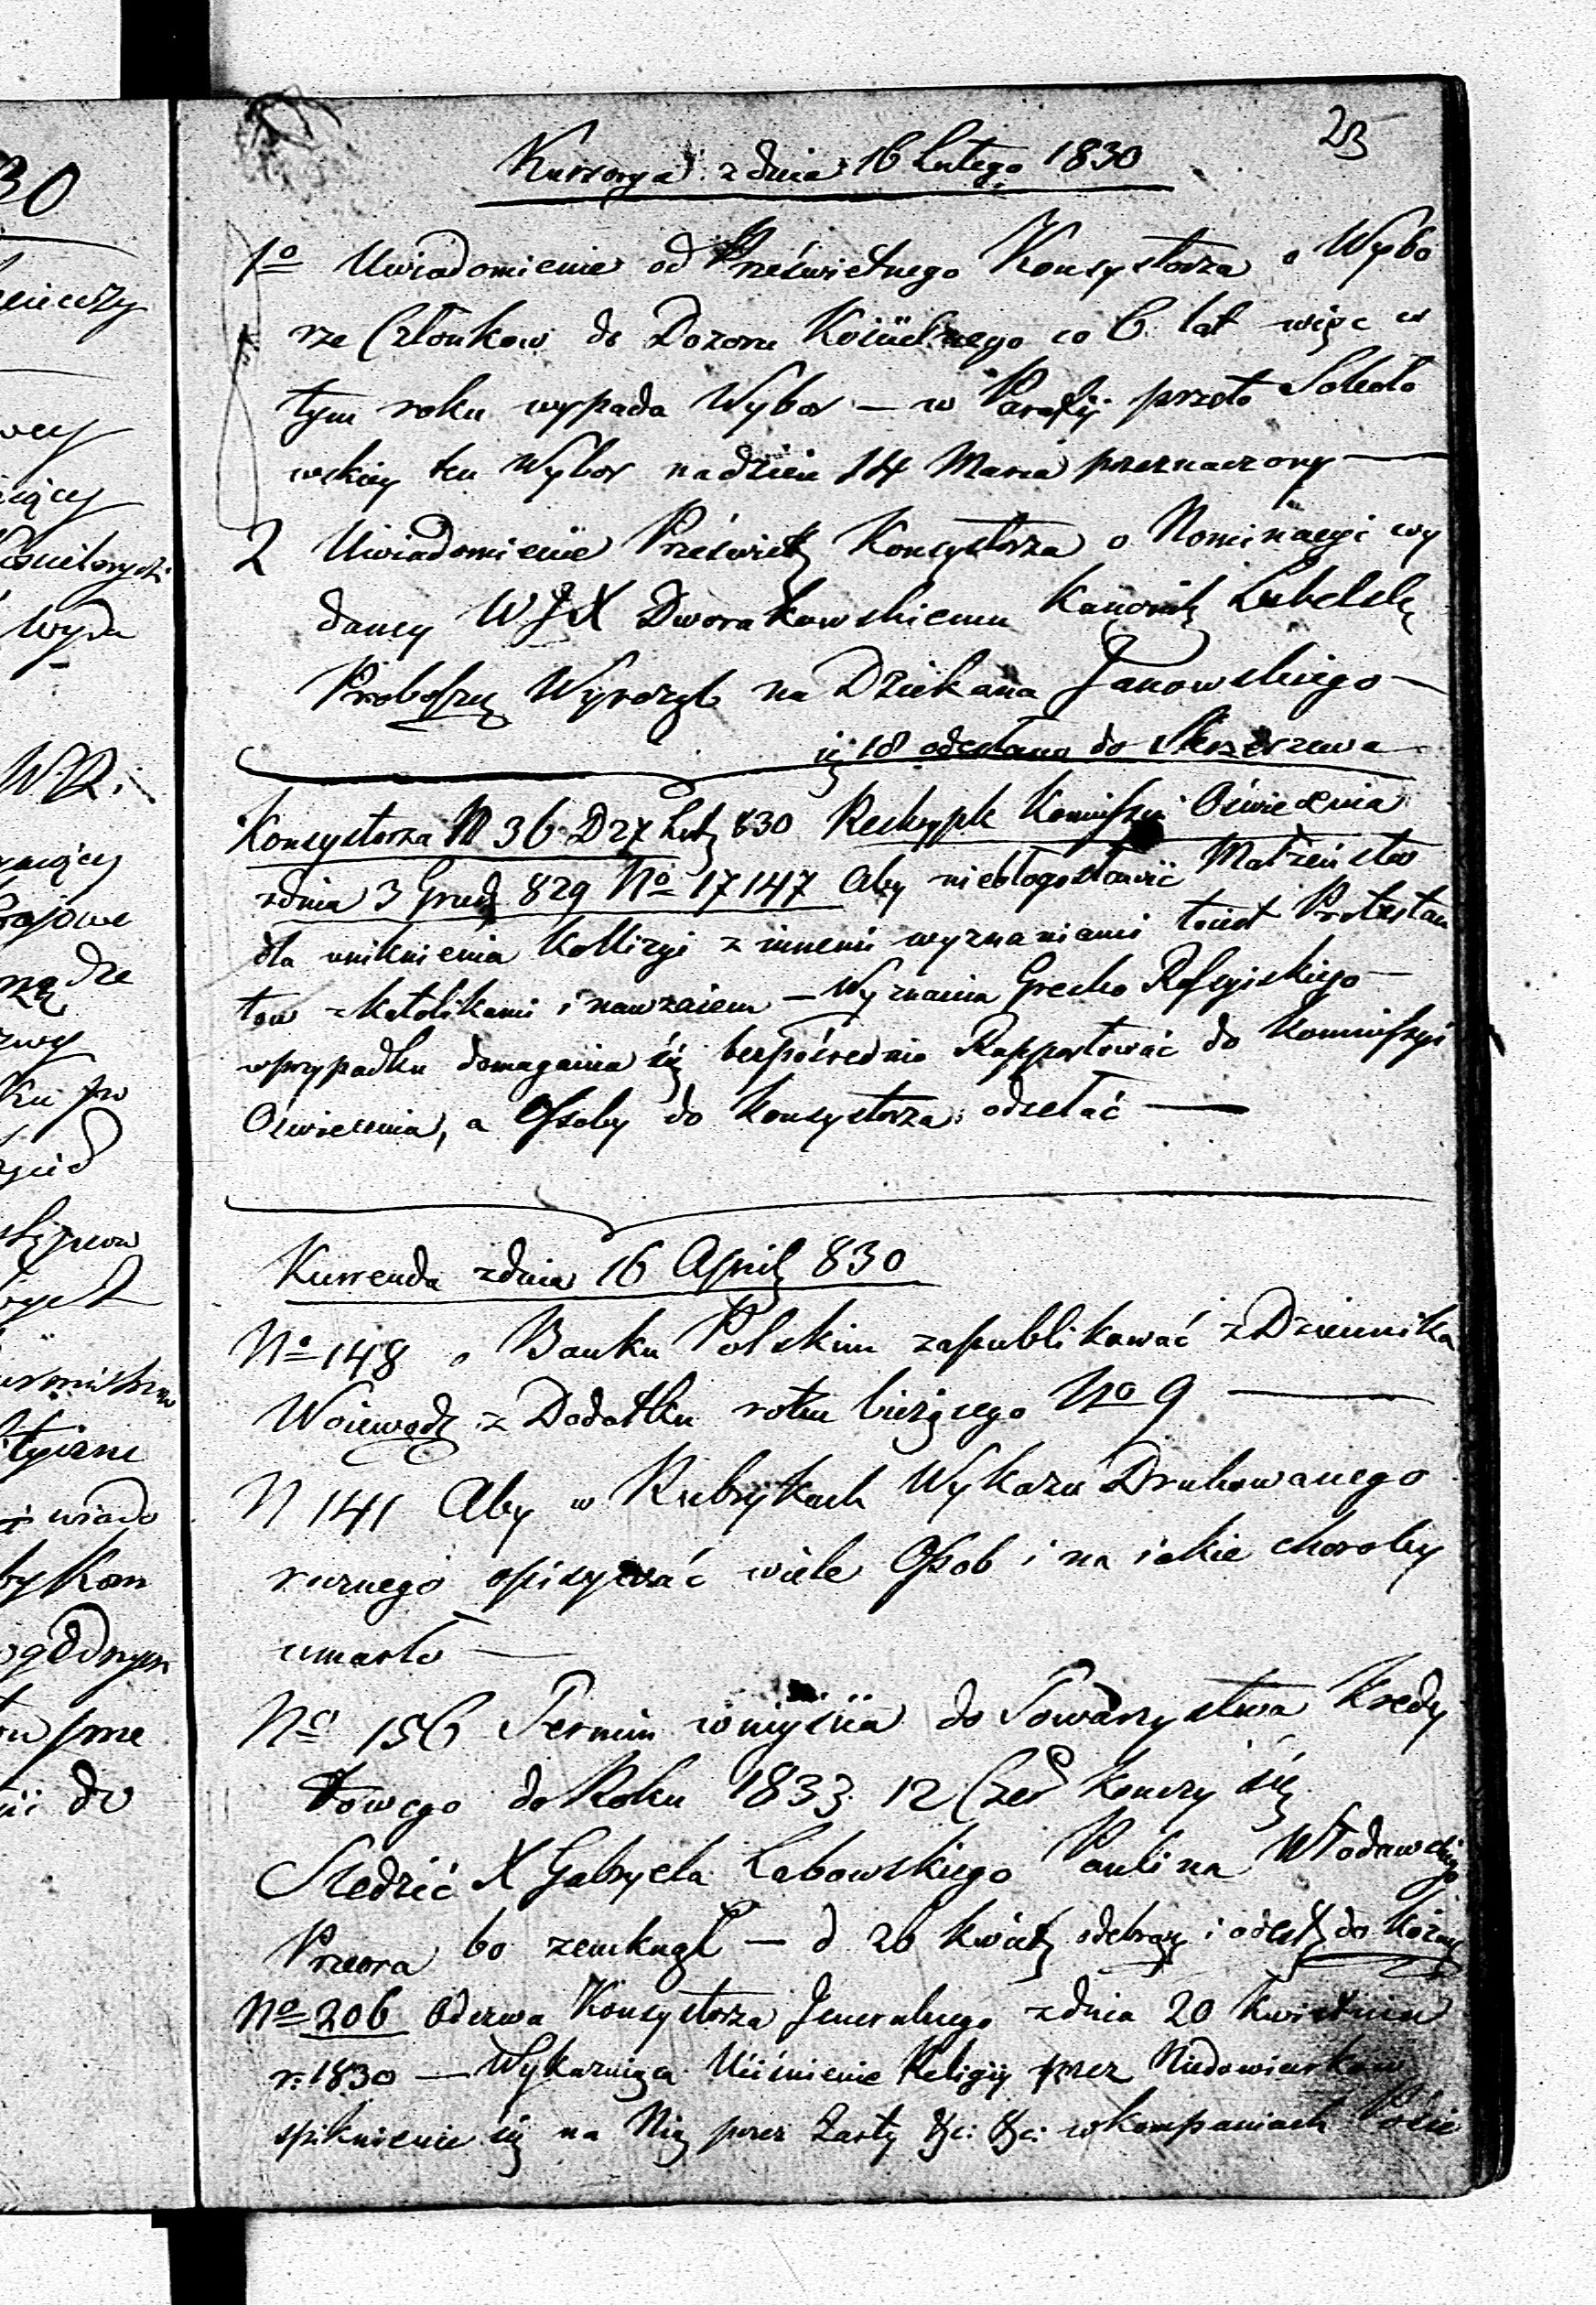 23
Kursorya z dnia 16 Lutego 1830
1o Uwiadomienie od Prześwietnego Konsystorza o Wybo
rze Członkow do Dozoru Kościelnego co 6 lat więc w
tym roku wypada Wybor — w Parafij przeto Sokoło
wskiey ten Wybor na dzień 14 Marca przeznaczony —
2 Uwiadomienie Prześwietg Konsystorza o Nominacyi wy
daney WJX Dworakowskiemu Kanonikg Lubelskg
Proboszczg Wyrozęb na Dziekana Janowskiego —
i 18 odesłano do Skrzeszewa
Konsystorza N 36 D 27 Lutg 830 Reskrypt Komiſsyi Oświecenia
z dnia 3 Grudg 829 No 17147 Aby niebłogosławić Małżeństw
dla uniknienia Kollizyi z innemi wyznaniami toiest Protestan
tow z Katolikami i nawzaiem — Wyznania Grecko Roſsyiskiego —
w przypadku domagania się bezpośrednio Rapportować do Komiſsyi
Oświecenia, a Oſsoby do Konsystorza odsełać —
Kurrenda z dnia 16 Aprilg 830
No 148 o Banku Polskim zapublikować z Dziennika
Woiewodzg z Dodatku roku bieżącego No 9 —
N 141 Aby w Rubrykach Wykazu Drukowanego
rocznego opisywać wiele Oſsob i na iakie choroby
umarło —
No 156 Termin wniyścia do Towarzystwa Kredy
towego do Roku 1833 12 Czer konczy się
Sledzić X Gabryela Labowskiego Paulina Włodawskiego
Przeora bo zemknął — d 26 kwietg odebrag i odesłg do
No 206 Odezwa Konsystorza Jeneralnego z dnia 20 Kwietnia
r. 1830 — Wykazuiąca Uciśnienie Religij przez Niedowiarkow
spiknienie się na Nią przez Zarty &ci &ci w kompaniach